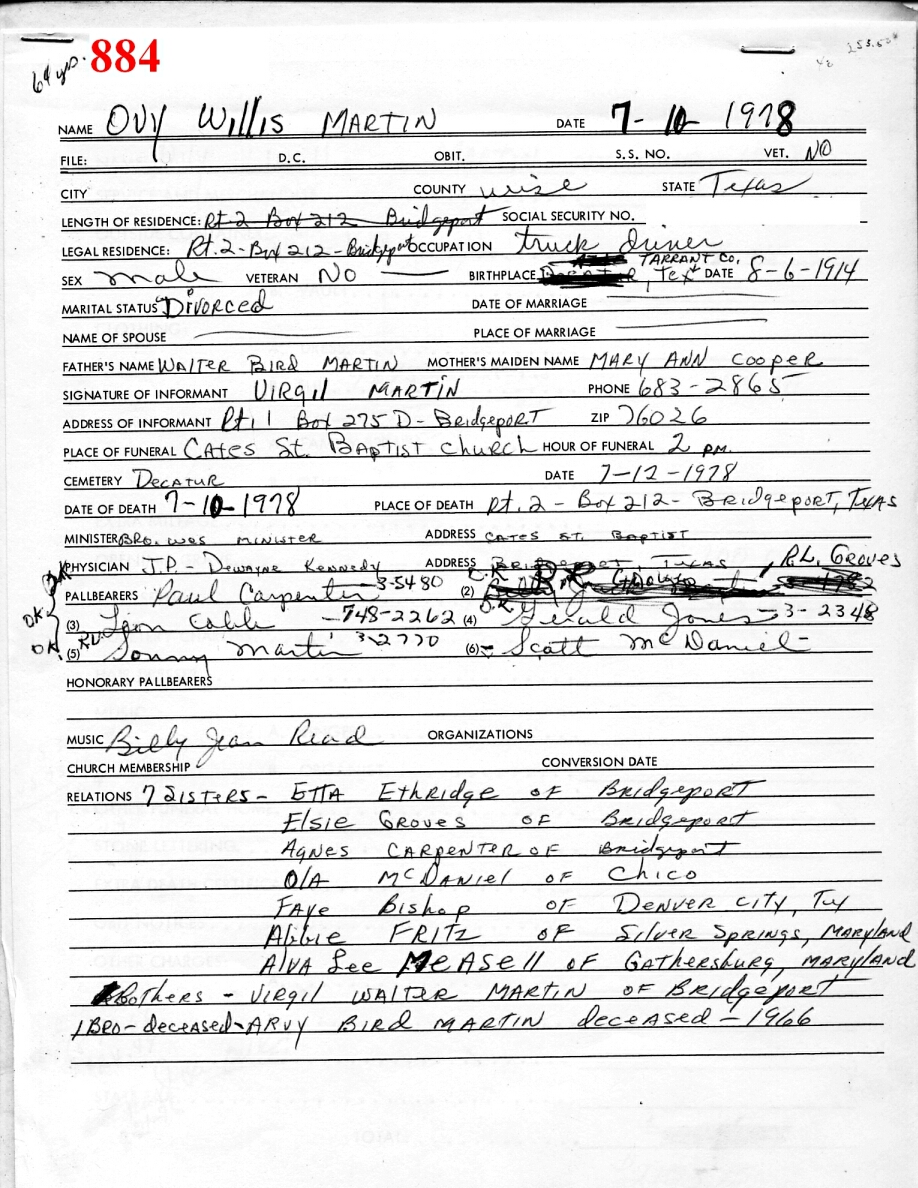 64 yrs. 884
153.50
NAME OVY Willis MARTIN DATE 7-10-1978
FILE: D.C. OBIT. S.S. NO. VET. NO
CITY COUNTY wise STATE Texas
LENGTH OF RESIDENCE: Rt-2 Box 212 Bridgeport SOCIAL SECURITY NO.
LEGAL RESIDENCE: Rt.2-Box 212-Bridgeport OCCUPATION truck driver
TARRANT CO.
SEX male VETERAN NO BIRTHPLACE , Tex DATE 8-6-1914
MARITAL STATUS Divorced DATE OF MARRIAGE
NAME OF SPOUSE PLACE OF MARRIAGE
FATHER'S NAME WALTER BIRD MARTIN MOTHER'S MAIDEN NAME MARY ANN COOPER
SIGNATURE OF INFORMANT VIRGIL MARTIN PHONE 683-2865
ADDRESS OF INFORMANT Rt. 1 Box 275 D - BRIDGEPORT ZIP 76026
PLACE OF FUNERAL CATES St. BAPTIST CHURCH HOUR OF FUNERAL 2 PM.
CEMETERY DECATUR DATE 7-12-1978
DATE OF DEATH 7-10-1978 PLACE OF DEATH Rt. 2 - Box 212 - BRIDGEPORT, TEXAS
MINISTER BRO. WES MINISTER ADDRESS CATES ST. BAPTIST
PHYSICIAN J.P. - DEWAYNE KENNEDY ADDRESS BRIDGEPORT, TEXAS , R.L. GROVES
PALLBEARERS OK Paul Carpenter 3-5480 (2)
OK (3) Leon Cable -748-2262 (4) O.K. Gerald Jones - 3-2348
OK (5) Sonny Martin 3-2770 (6) - Scott McDaniel -
HONORARY PALLBEARERS
MUSIC Billy Jean Read ORGANIZATIONS
CHURCH MEMBERSHIP CONVERSION DATE
RELATIONS 7 SISTERS - ETTA Ethridge OF Bridgeport
Elsie GROVES OF BRIDGEPORT
AGNES CARPENTER OF Bridgeport
OlA McDANIEL OF CHICO
FAYE Bishop OF DENVER CITY, Tx
Abbie FRITZ OF SILVER SPRINGS, MARYLAND
AlVA Lee MEASEll OF GATHERSBURG, MARYLAND
Bothers - VIRGIL WALTER MARTIN OF BRIDGEPORT
1 BRO - deceased - ARVY BIRD MARTIN deceased - 1966